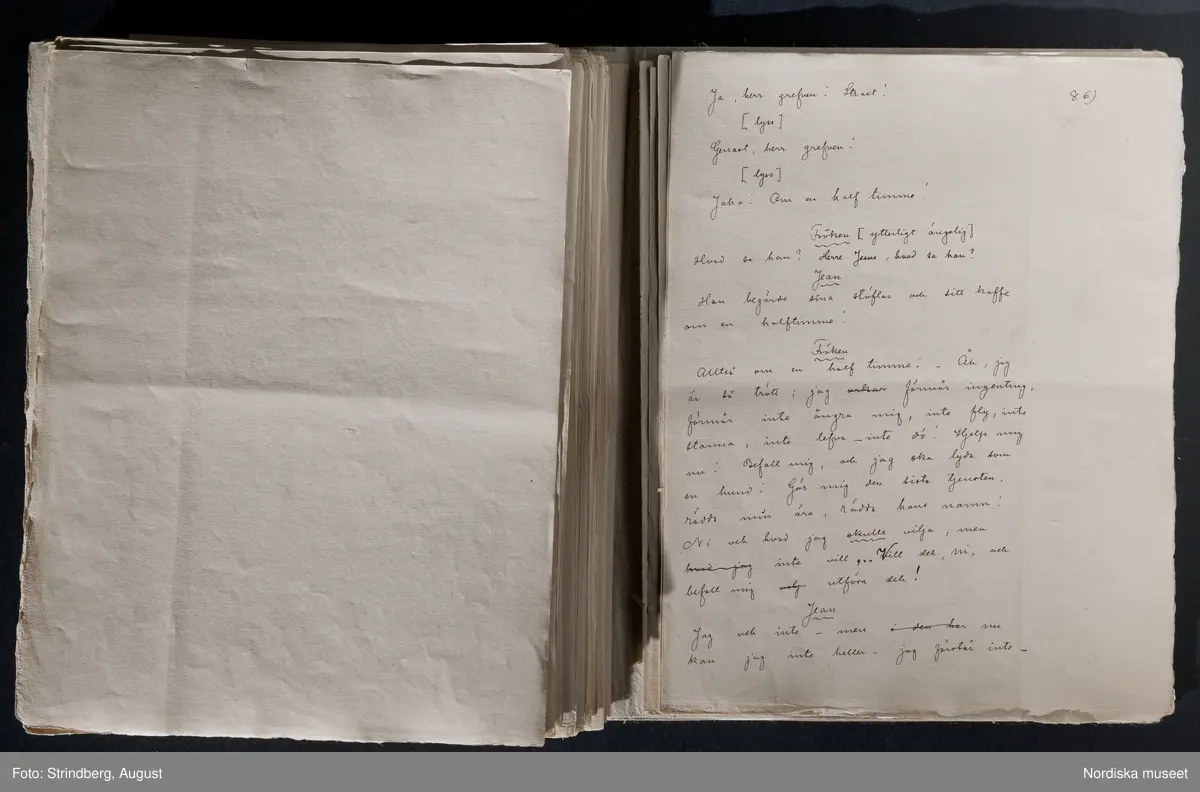 86)
Ja, herr grefven! Strax!
[lyss]
Genast, herr grefven!
[lyss]
Jaha! Om en half timme!
Fröken [ytterligt ängslig]
Hvad sa han? Herre Jesus, hvad sa han?
Jean
Han begärde sina stöflar och sitt kaffe
om en halftimme!
Fröken
Alltså om en half timme! – Åh, jag
är så trött; jag orkar förmår ingenting,
förmår inte ångra mig, inte fly, inte
stanna, inte lefva – inte dö! Hjelp mig
nu! Befall mig, och jag ska lyda som
en hund! Gör mig den sista tjensten,
rädda min ära, rädda hans namn!
Ni vet hvad jag skulle vilja, men
hvad jag inte vill... Vill det, ni, och
befall mig utföra det!
Jean
Jag vet inte – men i den här nu
kan jag inte heller – jag förstår inte –
Foto: Strindberg, August
Nordiska museet